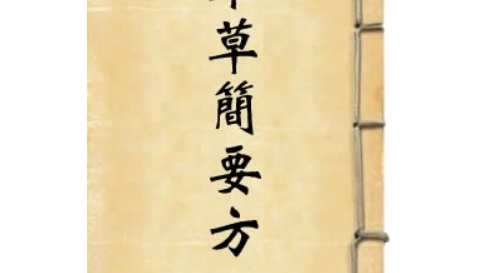 草簡要方